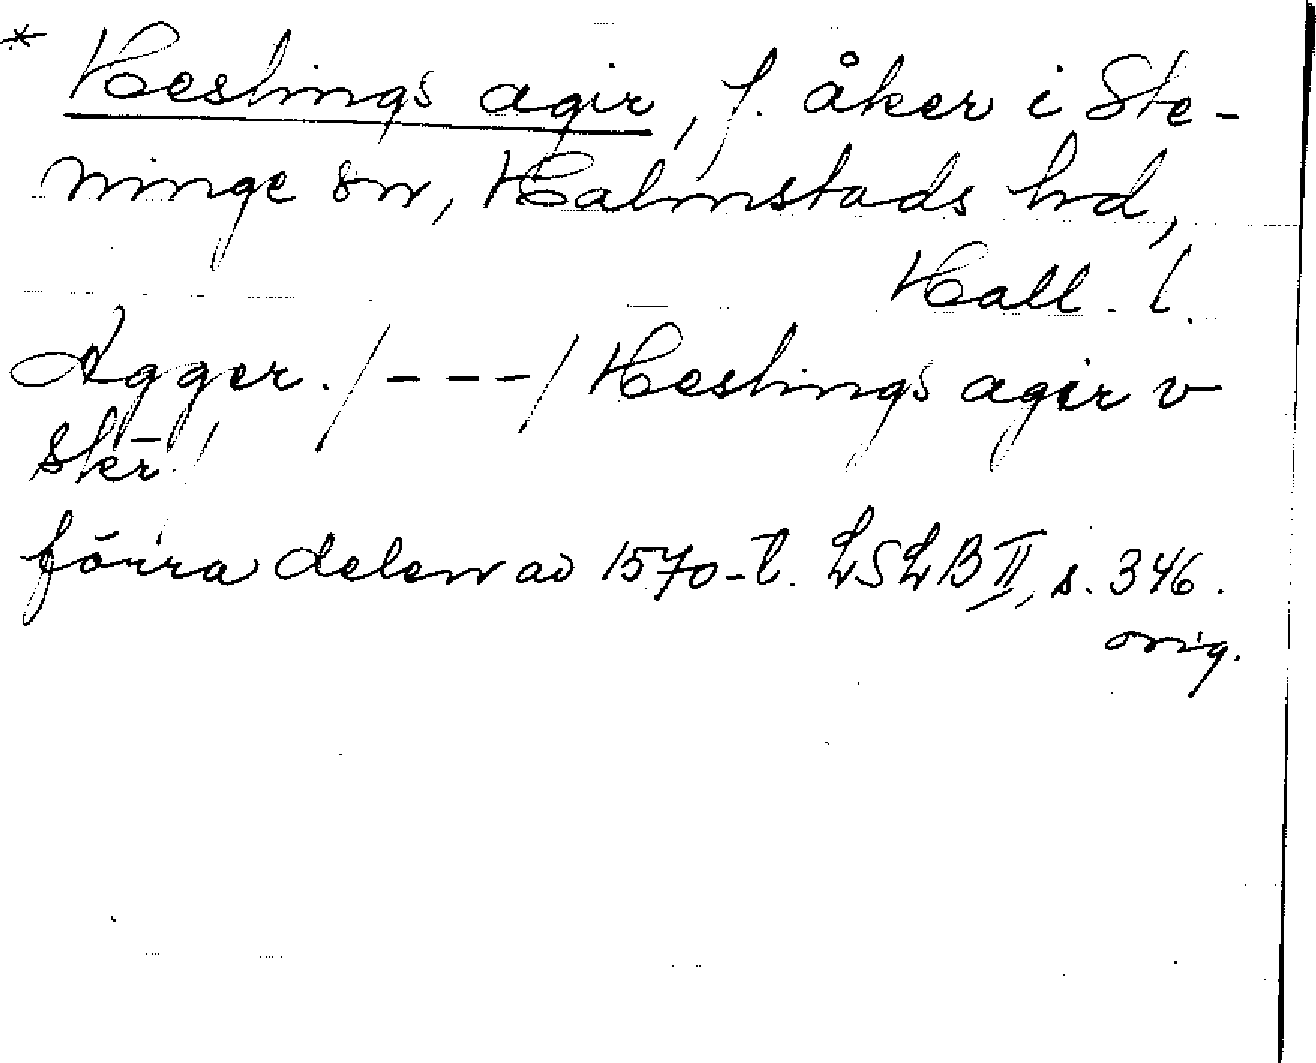 * Heslings agir, f. åker i Ste-
ninge sn, Halmstads hd,
Hall. l.
Agger. /---/ Heslings agir v
skr̄. /
förra delen av 1570-t. LSLB II, s. 346.
orig.